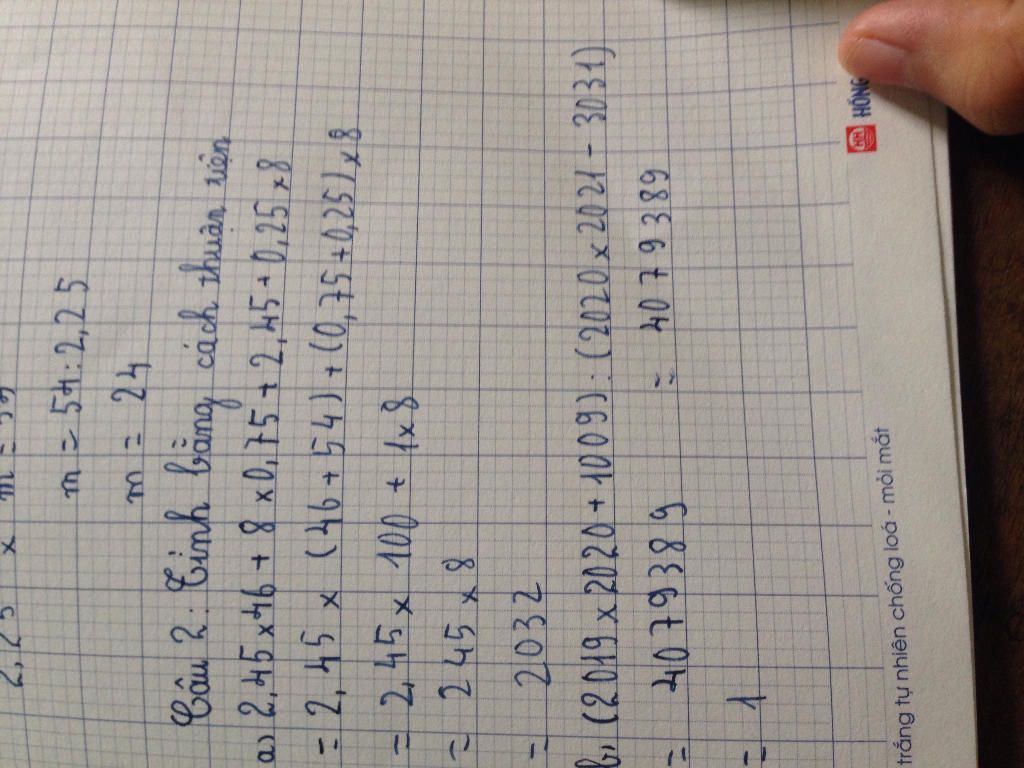 2,25 x m = 54
m = 54 : 2,25
m = 24
Câu 2: Tính bằng cách thuận tiện
a) 2,45 x 46 + 8 x 0,75 + 2,45 + 0,25 x 8
= 2,45 x (46 + 54) + (0,75 + 0,25) x 8
= 2,45 x 100 + 1 x 8
= 245 x 8
= 2032
b, (2019 x 2020 + 1009) : (2020 x 2021 - 3031)
= 4079389 : 4079389
= 1
trắng tự nhiên chống loá - mỏi mắt
HH HỒNG